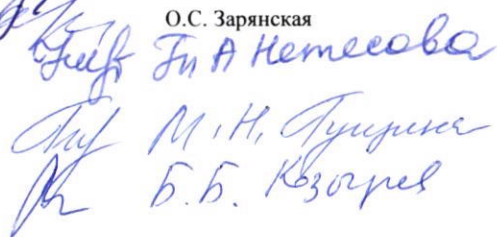 О.С. Зарянская
А Нетесова
М.Н. Пущина
Б.Б. Козырев